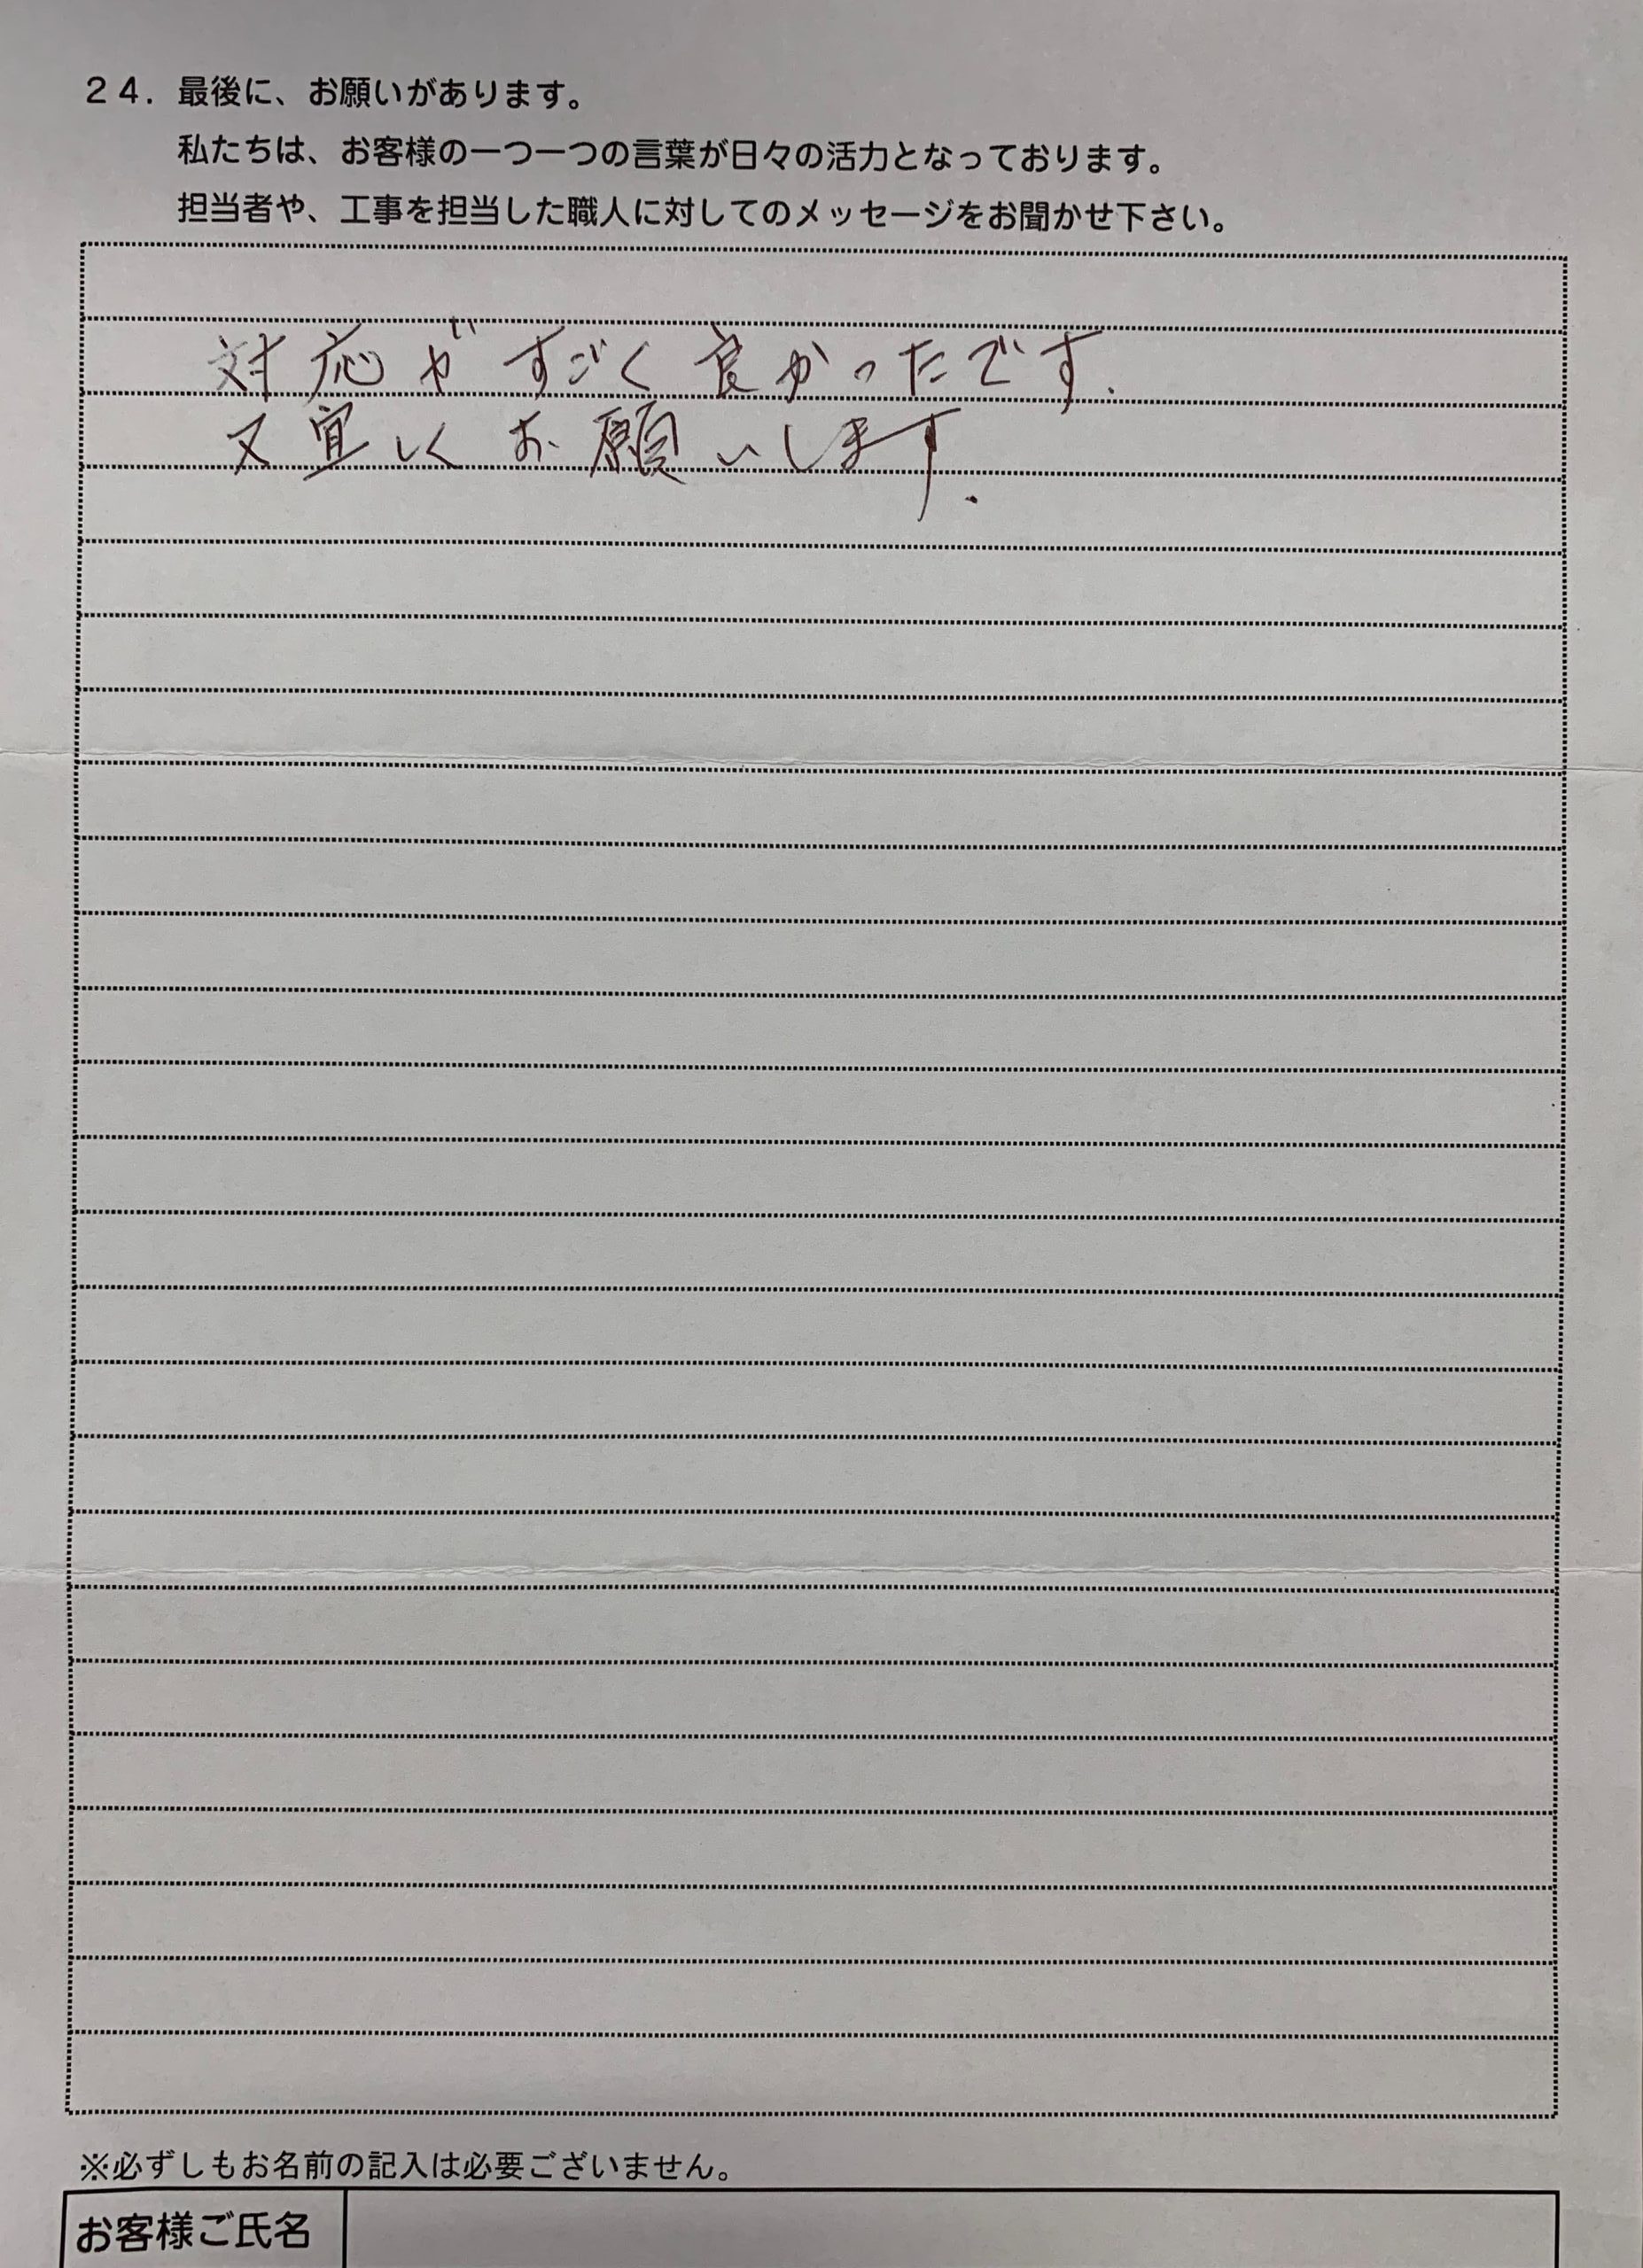 ２４．最後に、お願いがあります。
私たちは、お客様の一つ一つの言葉が日々の活力となっております。
担当者や、工事を担当した職人に対してのメッセージをお聞かせ下さい。
対応がすごく良かったです.
又宜しくお願いします.
※必ずしもお名前の記入は必要ございません。
お客様ご氏名